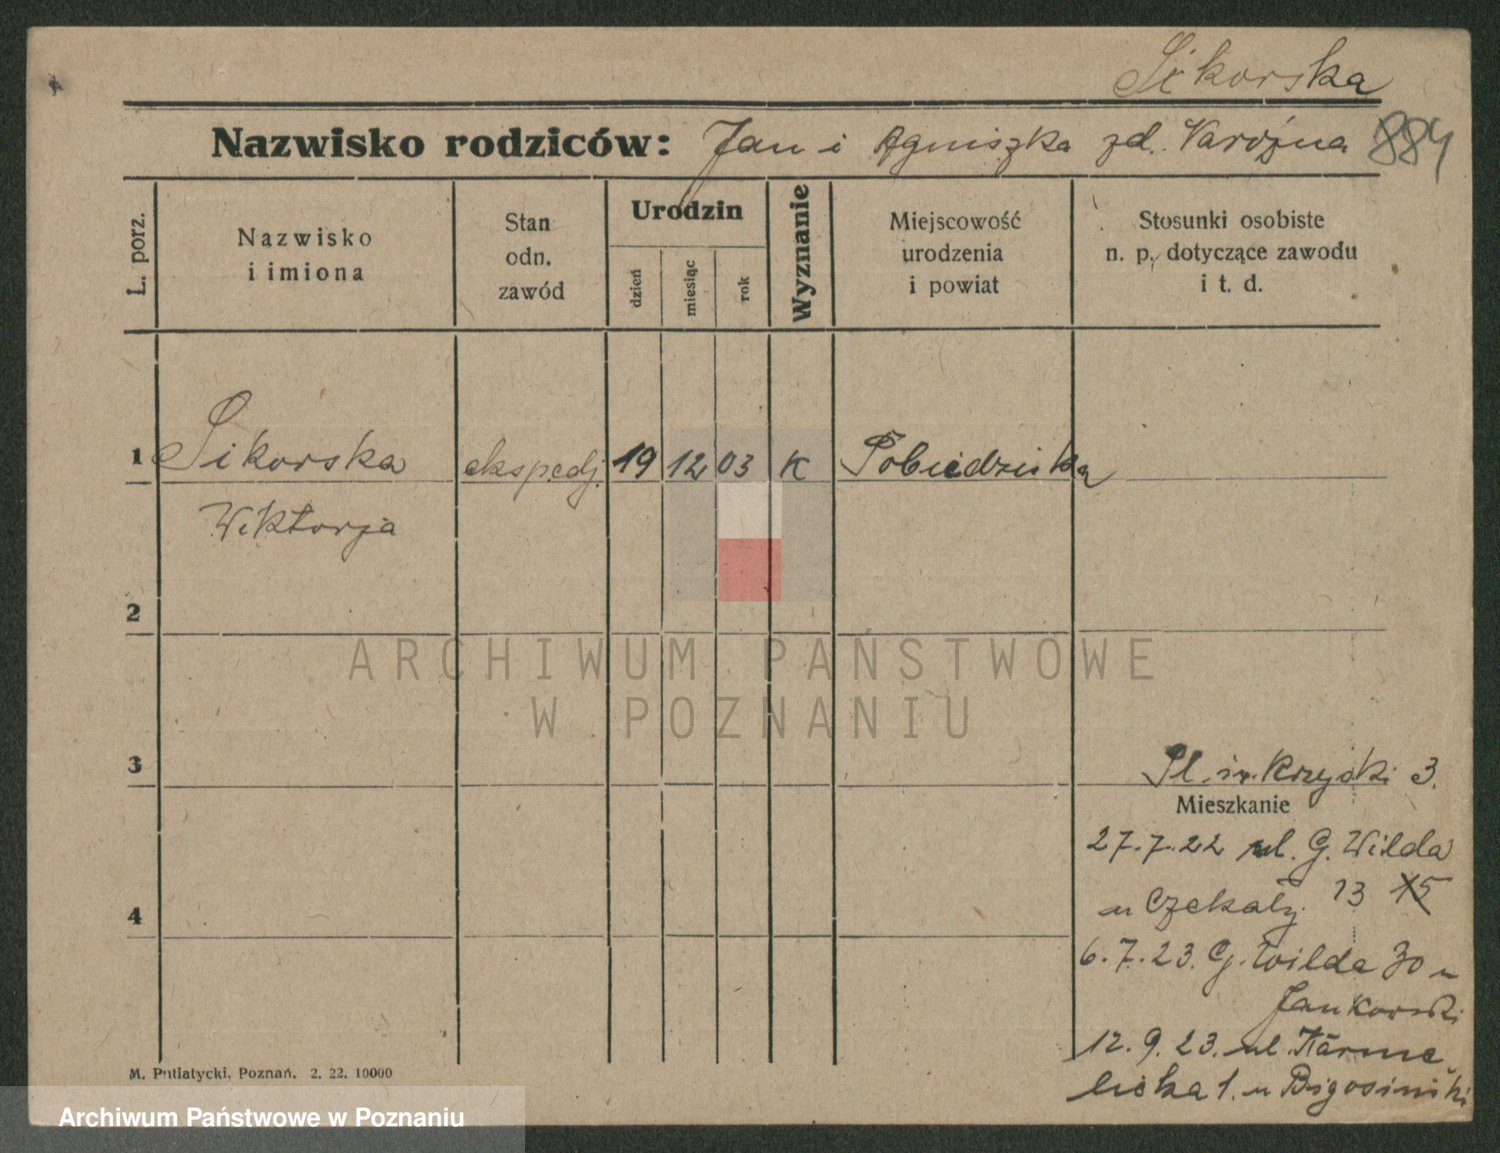 Sikorska
Nazwisko rodziców: Jan i Agniszka zd.
884
L. porz.
Nazwisko
i imiona
Stan
odn.
zawód
Urodzin
dzień
miesiąc
rok
Wyznanie
Miejscowość
urodzenia
i powiat
Stosunki osobiste
n. p. dotyczące zawodu
i t. d.
1 Sikorska ekspedj. 19 12 03 K Pobiedziska
Wiktorja
2
3
Pl. św. Krzyski 3.
Mieszkanie
27.7.22 ul. G. Wilda
u Czekały 13 15
4
6.7.23. G. Wilda 30 u
Jankowski
12.9.23. ul. Karme
licka 1. u
M. Putiatycki, Poznań. 2. 22. 10000
ARCHIWUM PAŃSTWOWE
W POZNANIU
Archiwum Państwowe w Poznaniu